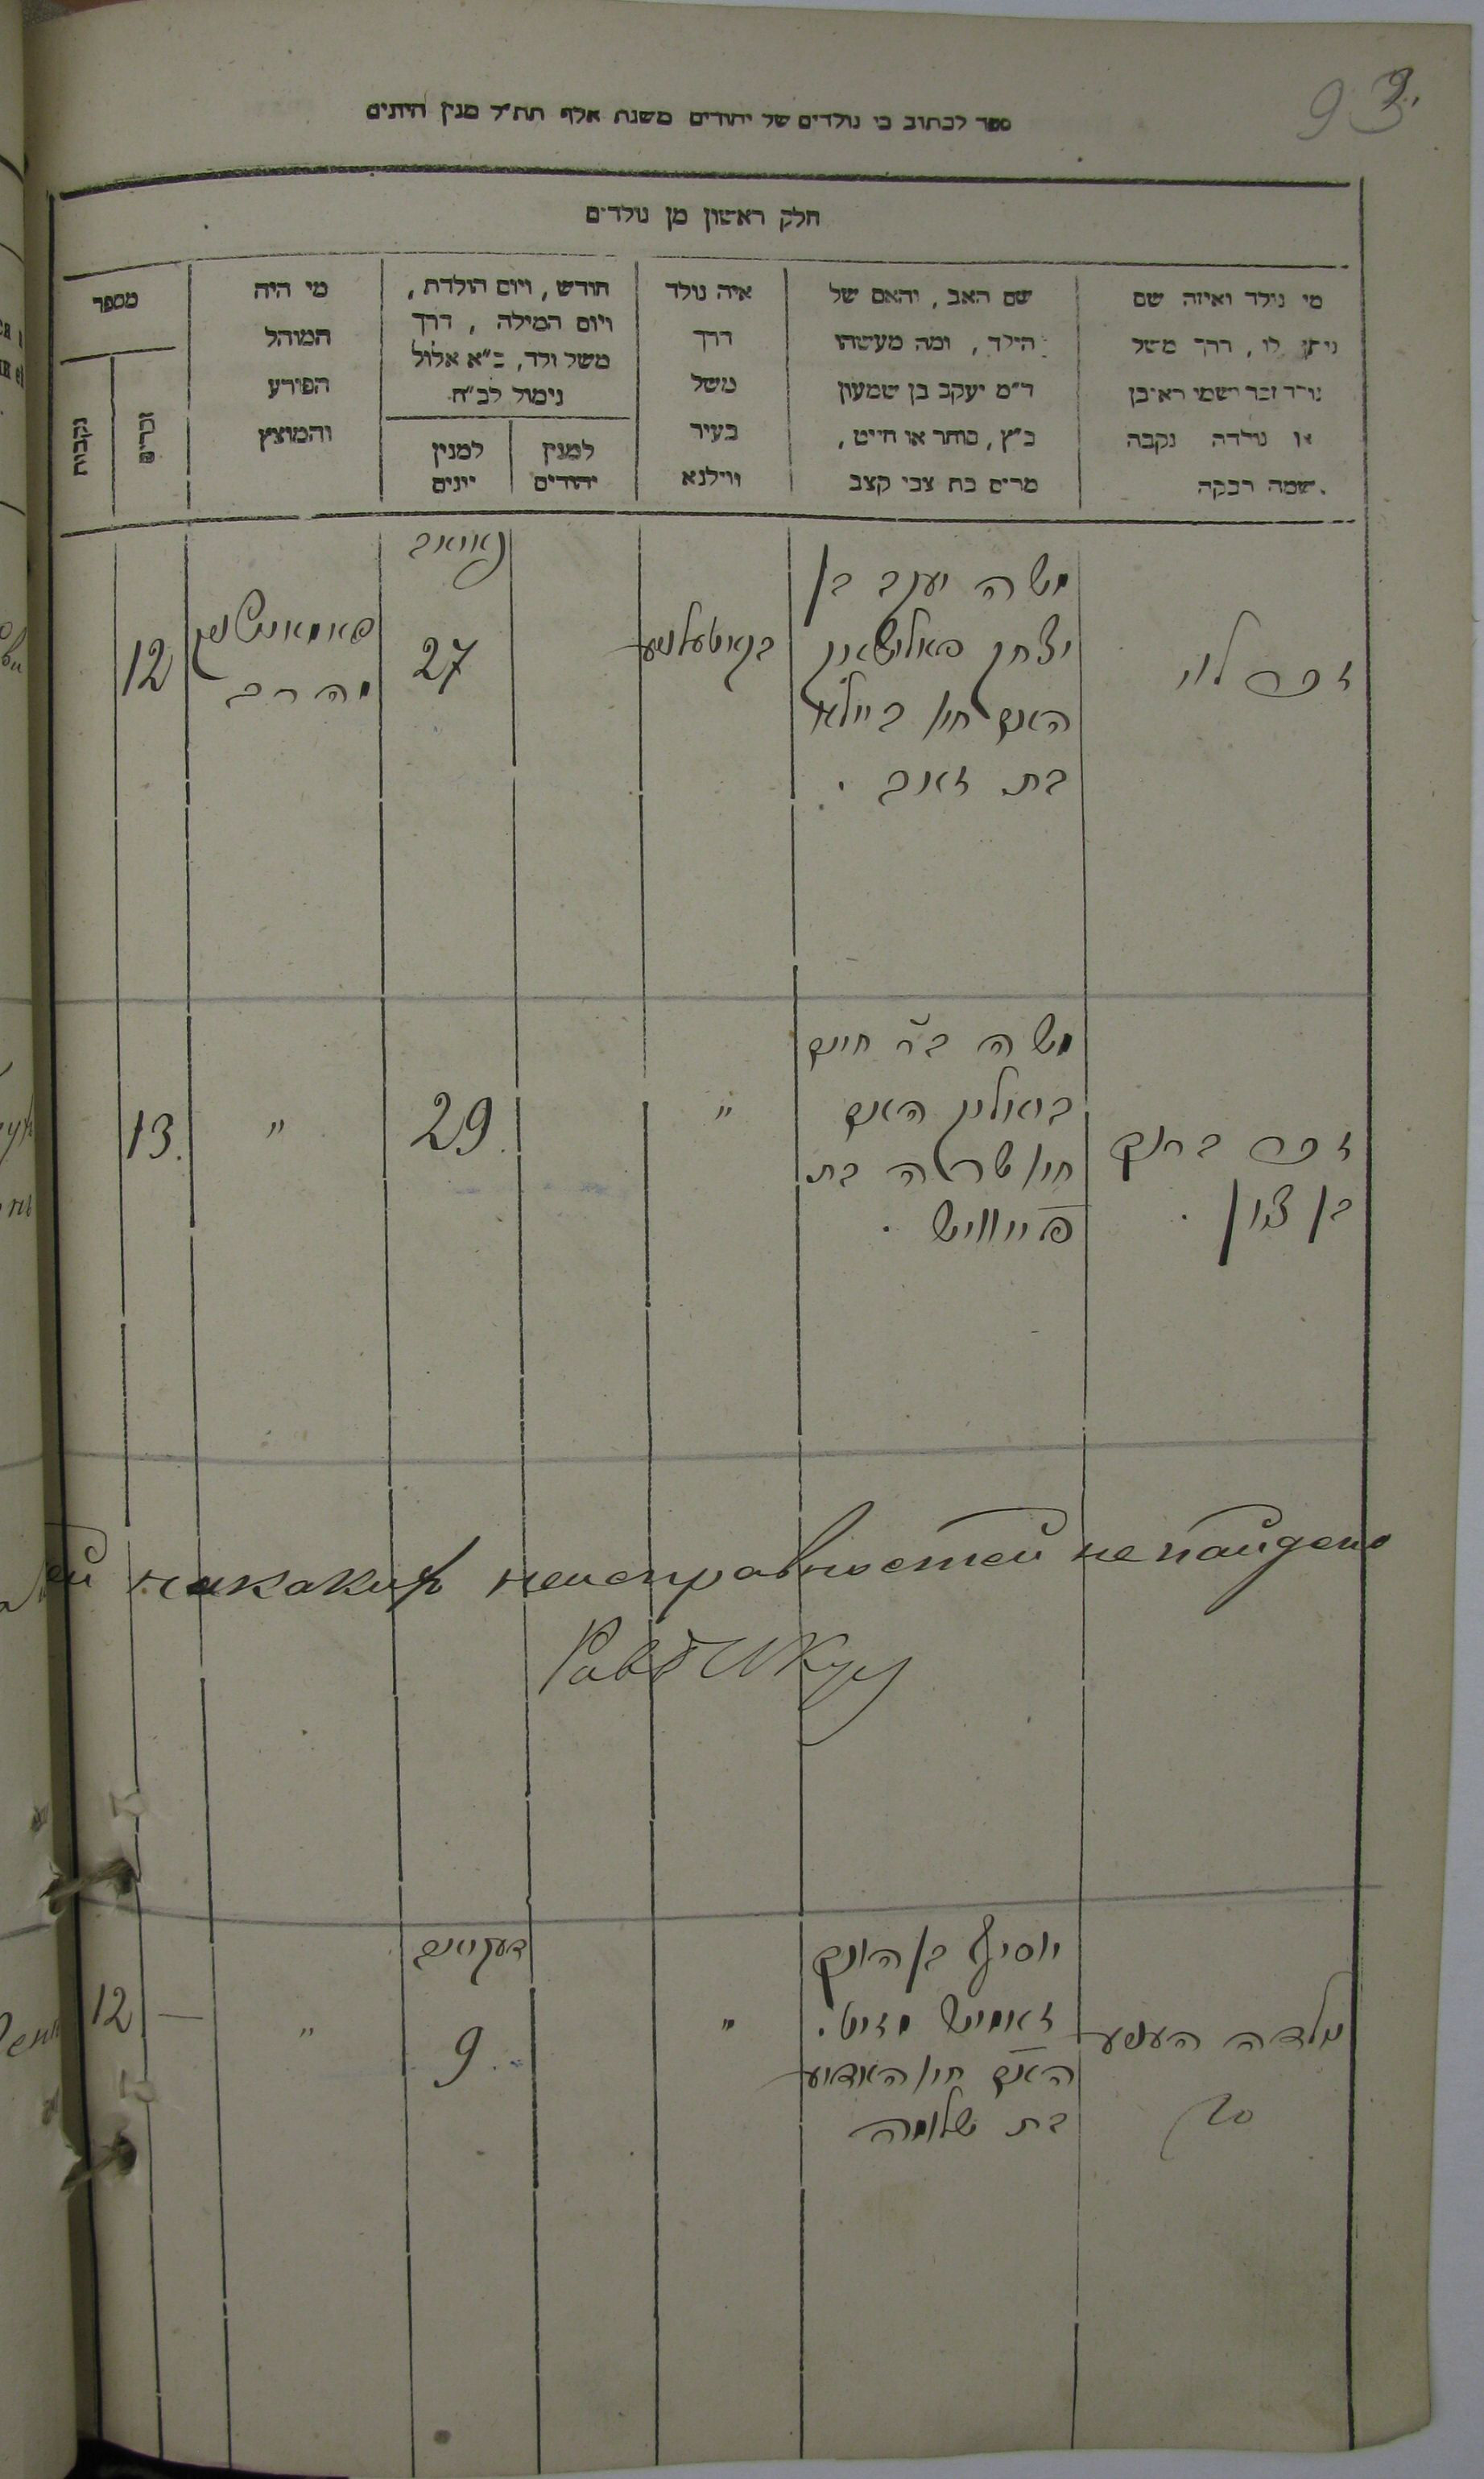 93.
ספר לכתוב בו נולדים של יהודים משנת אלף תת״ל מנין היונים
חלק ראשון מן נולדים
מי נילד ואיזה שם
ניתן לו, דרך משל
נולד זכר ושמו ראובן
או נולדה נקבה
שמה רבקה.
שם האב, והאם של
הילד, ומה מעשהו
ר״מ יעקב בן שמעון
כ״ץ, סוחר או חייט,
מרים בת צבי קצב
איה נולד
דרך
משל
בעיר
ווילנא
חודש, ויום הולדת,
ויום המילה, דרך
משל ולד, כ״א אלול
נימול לכ״ח
למנין
יהודים
למנין
יונים
מי היה
המוהל
הפורע
והמוצץ
מספר
זכרים
נקבות
זכר לוי
משה יעקב בן
יצחק
האם חי׳
בת זאב.
נאיאב
27
הרב
12
זכר ברוך
בן ציון.
משה ב״ר חיים
האם
חי׳ שרה בת
פייוויש.
"
29.
"
13.
ей никакихъ неисправностей не найдено
נולדה הענע
יוסיף בן
האם חי׳
בת שלומה
"
דעקאב
9.
"
—
12